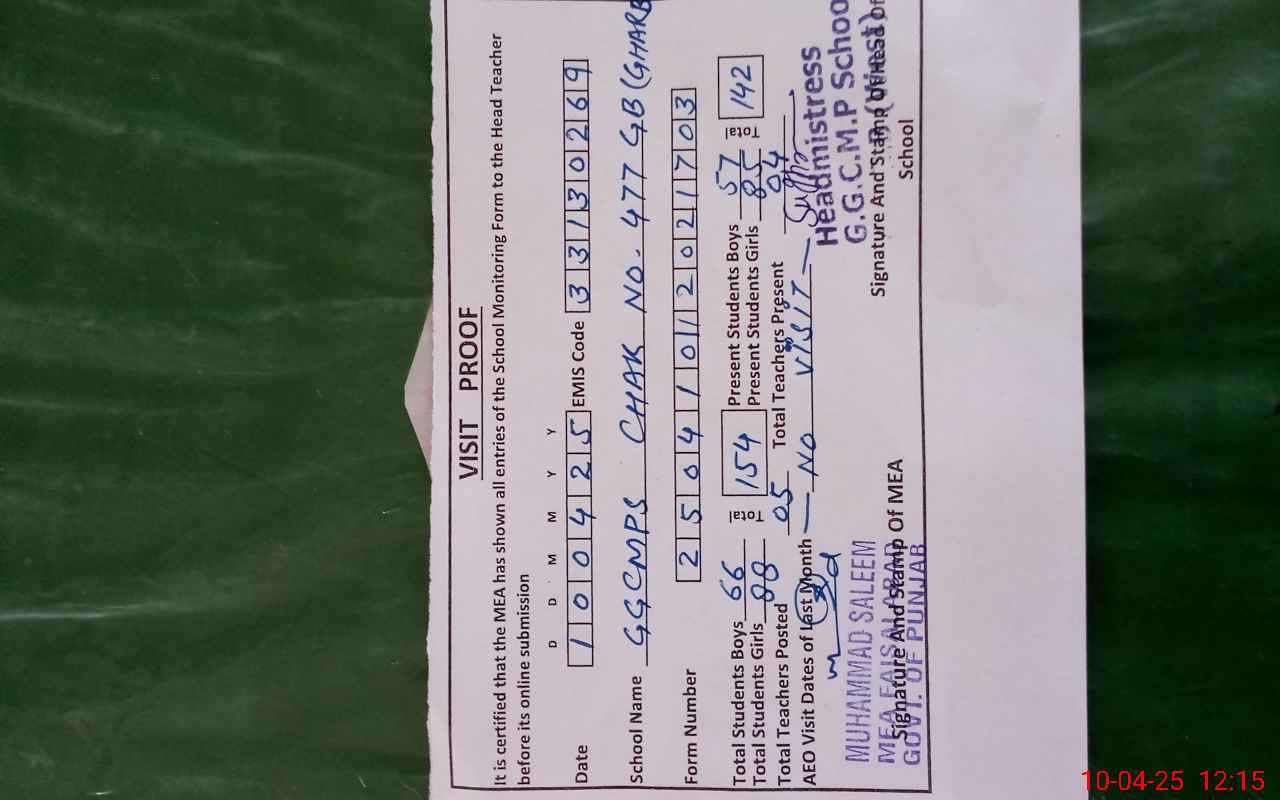 VISIT PROOF
It is certified that the MEA has shown all entries of the School Monitoring Form to the Head Teacher
before its online submission
D D M M Y Y
Date 1 0 0 4 2 5 EMIS Code 3 3 1 3 0 2 6 9
School Name GGCMPS CHAK NO. 477 GB (GHARB
Form Number 2 5 0 4 1 0 1 2 0 2 1 7 0 3
Total Students Boys 66 Total 154 Present Students Boys 57 Total 142
Total Students Girls 88 Present Students Girls 85
Total Teachers Posted 05 Total Teachers Present 04
AEO Visit Dates of Last Month — NO VISIT —
MUHAMMAD SALEEM
MEA FAISALABAD
GOVT. OF PUNJAB
Signature And Stamp Of MEA
Headmistress
G.G.C.M.P School
Signature And Stamp Of Head Of
School
10-04-25 12:15